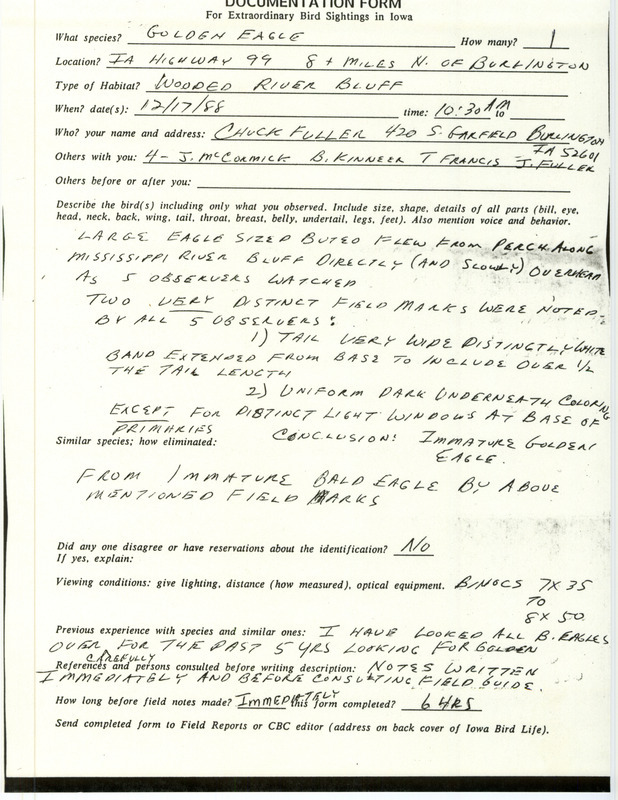 DOCUMENTATION FORM
For Extraordinary Bird Sightings in Iowa
What species? GOLDEN EAGLE How many? 1
Location? IA HIGHWAY 99 8+ MILES N. OF BURLINGTON
Type of Habitat? WOODED RIVER BLUFF
When? date(s): 12/17/88 time: 10:30 AM to
Who? your name and address: CHUCK FULLER 420 S. GARFIELD BURLINGTON
IA 52601
Others with you: 4 - J. MCCORMICK B. KINNEER T FRANCIS J. FULLER
Others before or after you:
Describe the bird(s) including only what you observed. Include size, shape, details of all parts (bill, eye,
head, neck, back, wing, tail, throat, breast, belly, undertail, legs, feet). Also mention voice and behavior.
LARGE EAGLE SIZED BUTEO FLEW FROM PERCH ALONG
MISSISSIPPI RIVER BLUFF DIRECTLY (AND SLOWLY) OVERHEAD
AS 5 OBSERVERS WATCHED
TWO VERY DISTINCT FIELD MARKS WERE NOTED
BY ALL 5 OBSERVERS:
1) TAIL VERY WIDE DISTINGTLY WHITE
BAND EXTENDED FROM BASE TO INCLUDE OVER 1/2
THE TAIL LENGTH
2) UNIFORM DARK UNDERNEATH COLORING
EXCEPT FOR DISTINCT LIGHT WINDOWS AT BASE OF
PRIMARIES CONCLUSION: IMMATURE GOLDEN
Similar species; how eliminated: EAGLE.
FROM IMMATURE BALD EAGLE BY ABOVE
MENTIONED FIELD MARKS
Did any one disagree or have reservations about the identification? NO
If yes, explain:
Viewing conditions: give lighting, distance (how measured), optical equipment. BINOCS 7X35
TO
8X50
Previous experience with species and similar ones: I HAVE LOOKED ALL B. EAGLES
OVER FOR THE PAST 5 YRS LOOKING FOR GOLDEN
CAREFULLY
References and persons consulted before writing description: NOTES WRITTEN
IMMEDIATELY AND BEFORE CONSULTING FIELD GUIDE.
How long before field notes made? IMMEDIATELY this form completed? 6 HRS
Send completed form to Field Reports or CBC editor (address on back cover of Iowa Bird Life).